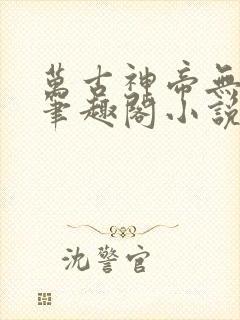 萬古神帝無
筆趣閣小說
沈警官